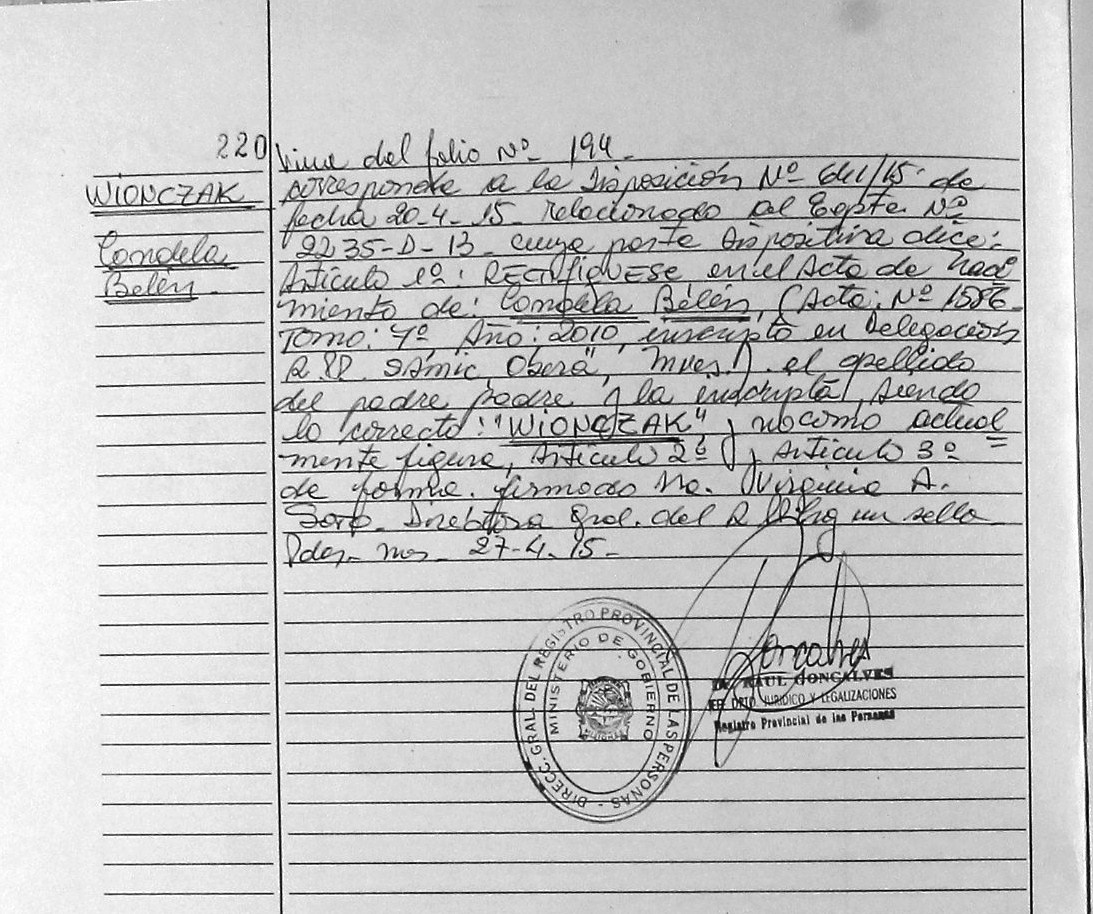 220
WIONCZAK
Candela
Belén
Viene del folio Nº 194
corresponde a la Disposición Nº 641/15 de
fecha 20-4-15 relacionado al Expte Nº
2235-D-13 cuya parte dispositiva dice:
Artículo 1º: RECTIFIQUESE en el Acta de naci
miento de: Candela Belén, (Acta: Nº 1586
Tomo: 4º, Año: 2010, inscripta en Delegación
SAMIC Oberá", Mnes.) el apellido
del padre padre y la inscripta, siendo
lo correcto: "WIONCZAK" y no como actual=
mente figura, Artículo 2º y Artículo 3º
de forma. firmado Virginia A.
Directora Gral. del un sello
Pdas. Mnes 27-4-15-
DIRECC. GRAL. DEL REGISTRO PROVINCIAL DE LAS PERSONAS -
MINISTERIO DE GOBIERNO
Goncalves
Dr. RAUL GONCALVES
JEFE DPTO. JURIDICO Y LEGALIZACIONES
Registro Provincial de las Personas